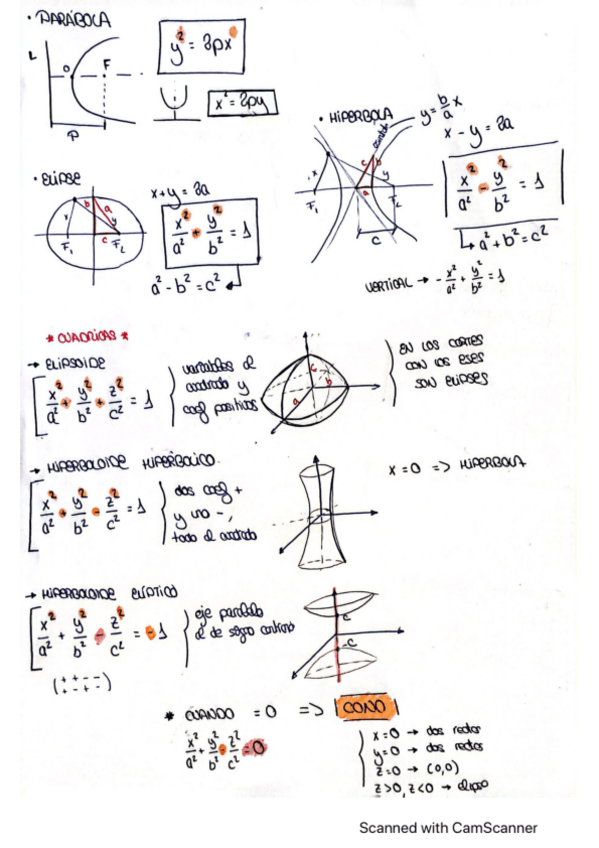 • PARÁBOLA
L
O
F
P
y² = 2px
x² = 2py
• HIPERBOLA
y = b/a x
asíntota
x - y = 2a
x
y
c
b
a
F₁
F₂
c
x²/a² - y²/b² = 1
↳ a² + b² = c²
VERTICAL → - x²/a² + y²/b² = 1
• ELIPSE
x + y = 2a
x
b
a
y
c
F₁
F₂
x²/a² + y²/b² = 1
a² - b² = c²
* CUADRICAS *
→ ELIPSOIDE
x²/a² + y²/b² + z²/c² = 1
variables al
cuadrado y
coef positivos
a
b
c
EN LOS CORTES
CON LOS EJES
SON ELIPSES
→ HIPERBOLOIDE HIPERBÓLICO
x²/a² + y²/b² - z²/c² = 1
dos coef +
y uno -,
todo al cuadrado
x = 0 => HIPERBOLA
→ HIPERBOLOIDE ELÍPTICO
x²/a² + y²/b² - z²/c² = -1
eje paralelo
al de signo contrario
c
-c
* CUANDO = 0 => CONO
x²/a² + y²/b² - z²/c² = 0
x = 0 → dos rectas
y = 0 → dos rectas
z = 0 → (0,0)
z > 0, z < 0 → elipse
Scanned with CamScanner